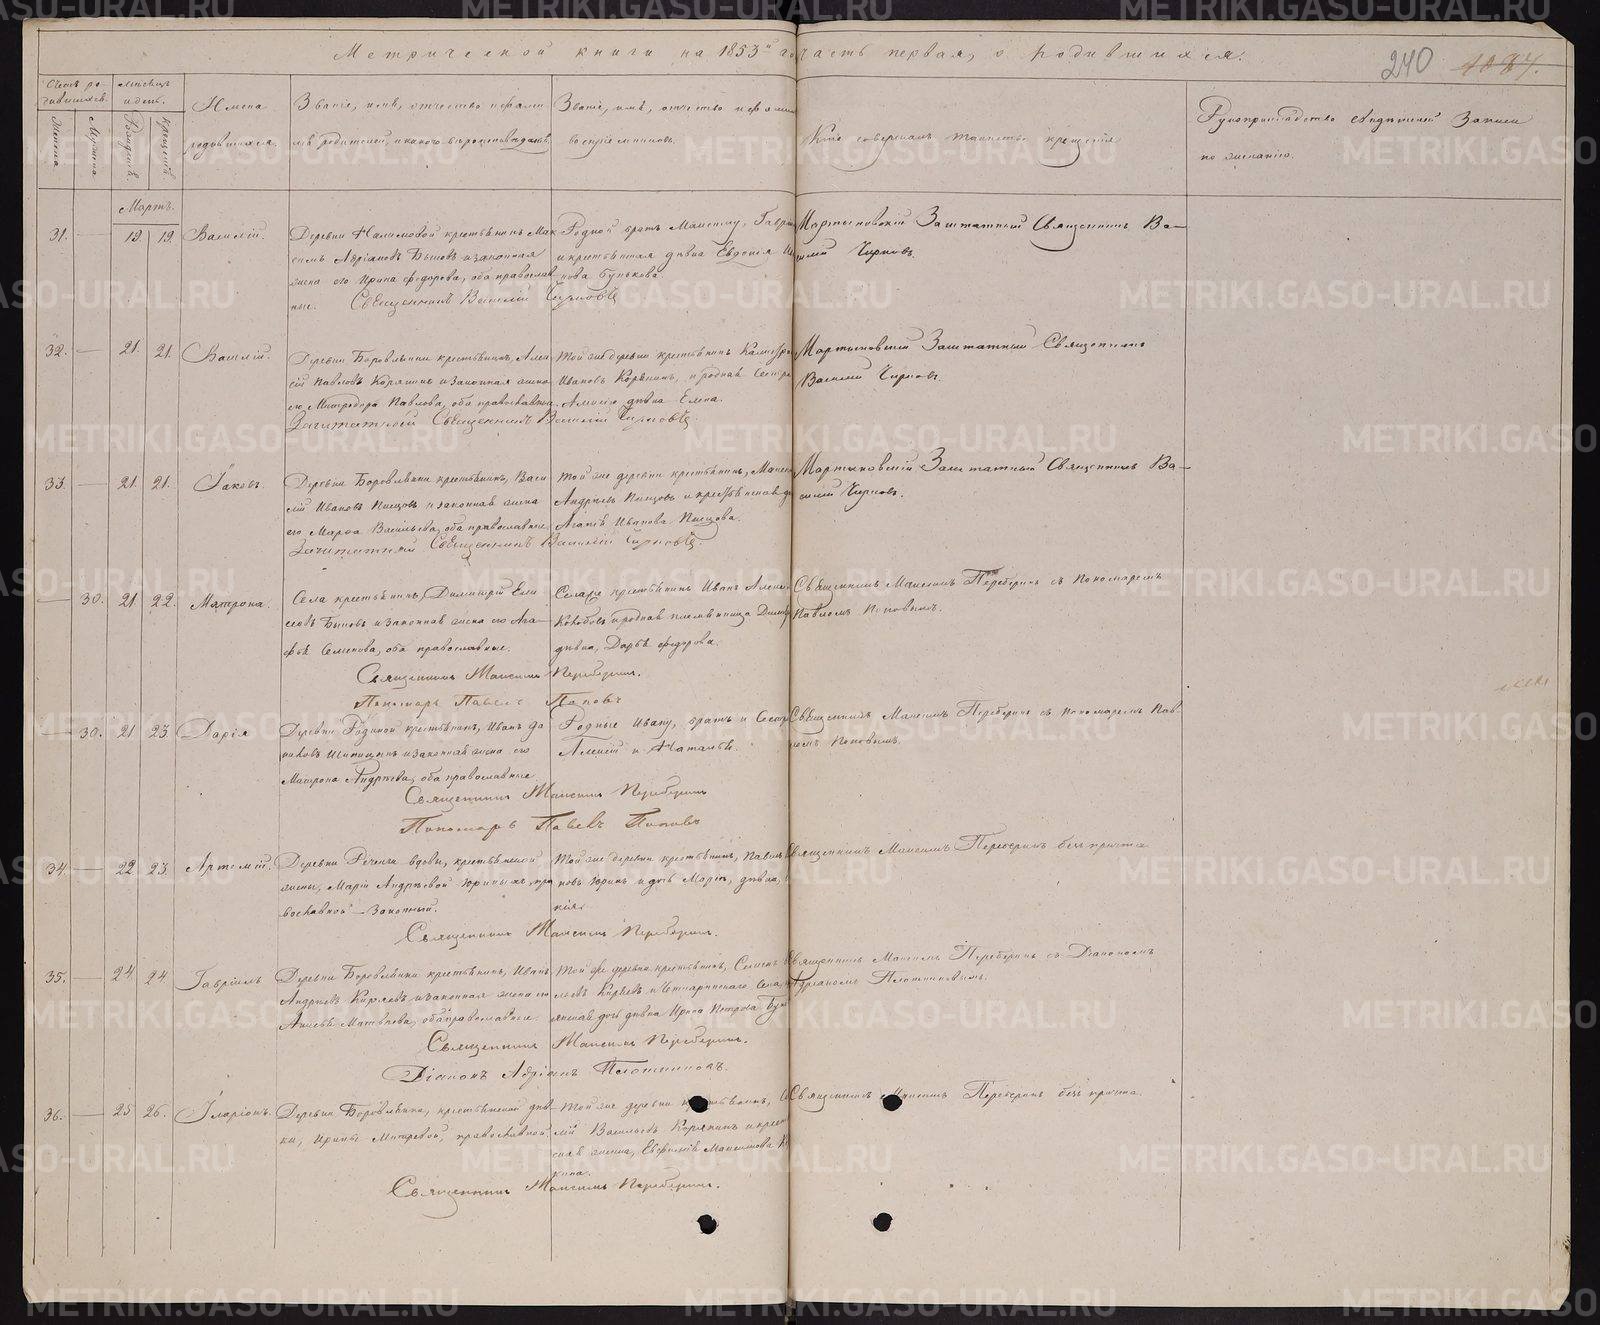 Метрической книги на 1853й год часть первая, о родившихся.
240
Счетъ родившихся.
Мѣсяцъ и день.
Имена родившихся.
Званіе, имя, отчество и фамилія родителей, и какого вѣроисповѣданія.
Званіе, имя, отчество и фамилія воспріемниковъ.
Кто совершалъ таинство крещенія
Рукоприкладство свидѣтелей записи по желанію.
Мартъ.
31. — 19. 19. Василій.
Деревни Налимовой крестьянинъ Мак
симъ Адріановъ Быковъ и законная
жена его Ирина Федорова, оба православ
ные. Священникъ Василій Чирковъ
Родной братъ Максиму, Гаврі
и крестьянская дѣвка Евдокія
нова Бунькова.
Мартыновскій Заштатный Священникъ Ва—
силій Чирковъ.
32. — 21. 21. Василій.
Деревни Боровлянки крестьянинъ, Алек
сѣй Павловъ Корякинъ и законная жена
его Митродора Павлова, оба православные.
Заштатный Священникъ Василій Чирковъ.
Той же деревни крестьянинъ
Ивановъ Корякинъ, и родная сестра
Алексію дѣвка Елена.
Мартыновскій Заштатный Священникъ
Василій Чирковъ.
33. — 21. 21. Іаковъ.
Деревни Боровлянки крестьянинъ, Васи
лій Ивановъ Пьецовъ и законная жена
его Марѳа Васильева, оба православные.
Заштатный Священникъ Василій Чирковъ.
Той же деревни крестьянинъ, Максим
Андреевъ и крестьянская
Агапія Иванова
Мартыновскій Заштатный Священникъ Ва—
силій Чирковъ.
— 30. 21. 22. Матрона.
Села крестьянинъ, Димитрій Ели
сѣевъ Быковъ и законная жена его Ага—
фья Семенова, оба православные.
Священникъ Максимъ Переберинъ.
Пономарь Павелъ Поповъ
Села же крестьянинъ Иванъ Алексѣ
и родная племянница Димит
дѣвка, Дарья Федорова.
Священникъ Максимъ Переберинъ съ Пономаремъ
Павломъ Поповымъ.
— 30. 21 23. Дарія
Деревни Родиной крестьянинъ, Иванъ Да
ниловъ Шипицынъ и законная жена его
Матрона Андреева, оба православные
Священникъ Максимъ Переберинъ
Пономарь Павелъ Поповъ
Родные Ивану, братъ и сестра
Алексій и Наталья.
Священникъ Максимъ Переберинъ съ Пономаремъ Пав
ломъ Поповымъ.
34. — 22 23. Артемій.
Деревни вдовы, крестьянской
жены, Маріи Андреевой Юриныхъ, пра
вославной — Законный.
Священникъ Максимъ Переберинъ.
Той же деревни крестьянинъ, Павелъ
новъ Юринъ и дочь Маріи, дѣвка,
кія.
Священникъ Максимъ Переберинъ безъ причта
35. — 24 24 Гавріилъ
Деревни Боровлянки крестьянинъ, Иванъ
Андреевъ Киряевъ и законная жена его
Матвѣева, оба православные.
Священникъ Максимъ Переберинъ.
Діаконъ Адріанъ Плотниковъ.
Той же деревни крестьянинъ, Семенъ
льевъ Киряевъ и Четкаринскаго села,
янская дочь дѣвка Ирина Петрова
Священникъ Максимъ Переберинъ съ Діакономъ
Адріаномъ Плотниковымъ.
36. — 25 26. Іларіонъ.
Деревни Боровлянки, крестьянской дѣв—
ки, Ирины православной.
Священникъ Максимъ Переберинъ.
Той же деревни крестьянинъ,
лій Васильевъ Корякинъ и крест
ская жена, Евфимія Максимова
кина.
Священникъ Максимъ Переберинъ безъ причта.
METRIKI.GASO-URAL.RU